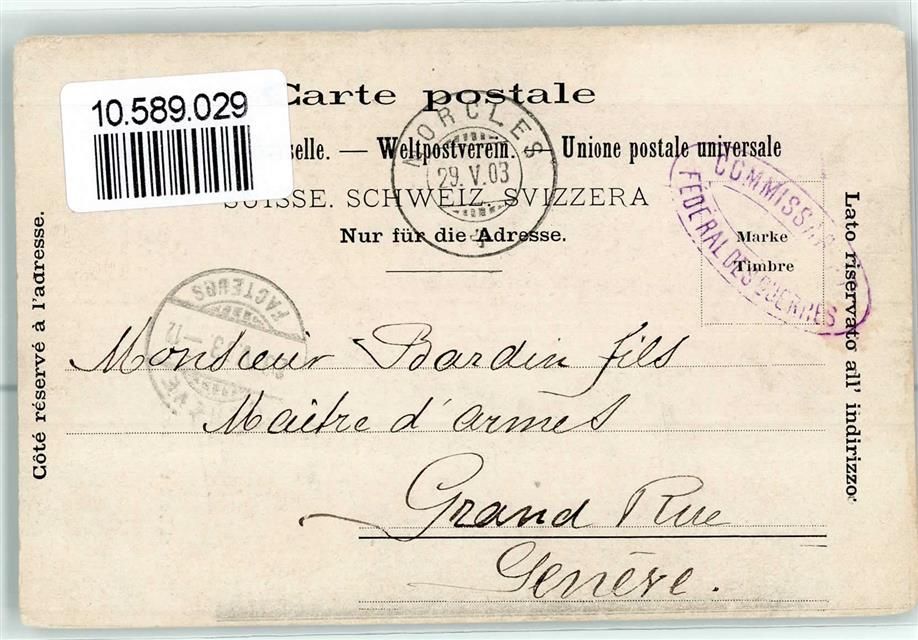 10.589.029
Carte postale
selle. — Weltpostverein. — Unione postale universale
SUISSE. SCHWEIZ. SVIZZERA
Nur für die Adresse.
MORCLES
29. V. 03
COMMISSAR
FÉDÉRAL DES GUERRES
Marke
Timbre
Côté réservé à l'adresse.
Lato riservato all' indirizzo
FACTEURS
Monsieur Bardin fils
Maître d'armes
Grand Rue
Genève.